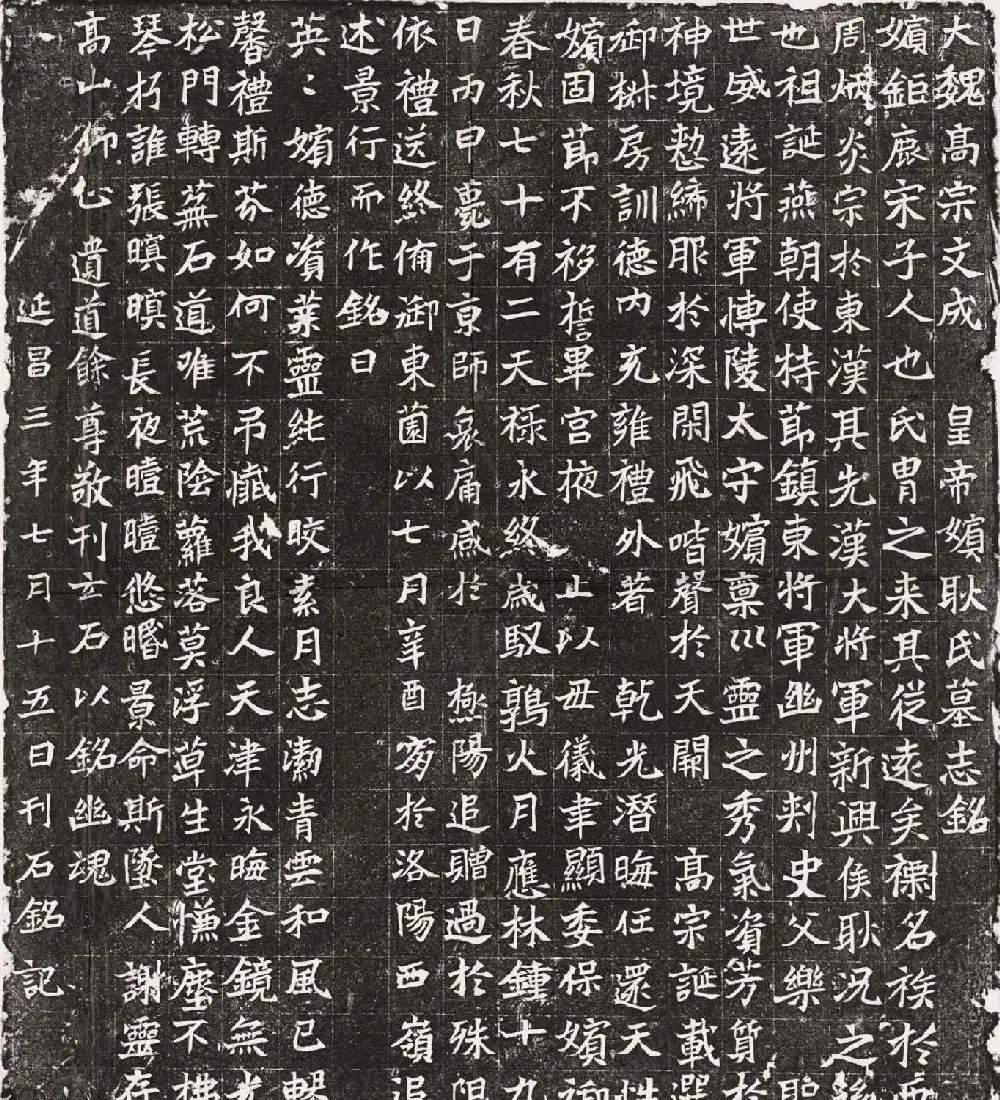 大魏高宗文成 皇帝嬪耿氏墓志銘
嬪鉅鹿宋子人也氏冑之来其從遠矣禰名裿於
周炳炎宗於東漢其先漢大将軍新興侯耿況之
也祖誕燕朝使持節鎮東将軍幽州刺史父樂
世威遠将軍博陵太守嬪稟巛靈之秀氣資芳質於
神境愸締服於深閑飛喈聲於天闈 高宗誕載選
御椒房訓德內充雍禮外著 乾光潛晦任還天性
嬪固節不移誓畢宮掖 止以毋儀聿顯委保嬪御
春秋七十有二天祿永終歳馭鶉火月應林鍾十九
日丙申薨于京師哀痛感於 極陽追贈過於殊
依禮送終俻御東薗以七月辛酉穸於洛陽西嶺追
述景行而作銘曰
英〻嬪德資業靈純行皎素月志潔青雲和風已
馨禮斯芬如何不吊殱我良人天津永晦金鏡無光
松門轉蕪石道唯荒陰蘿落莫浮草生堂㡘塵不拂
琴朽誰張暝暝長夜曀曀悠昬景命斯墜人謝靈存
高山仰心遺道餘尊敬刊玄石以銘幽魂
延昌三年七月十五日刊石銘記